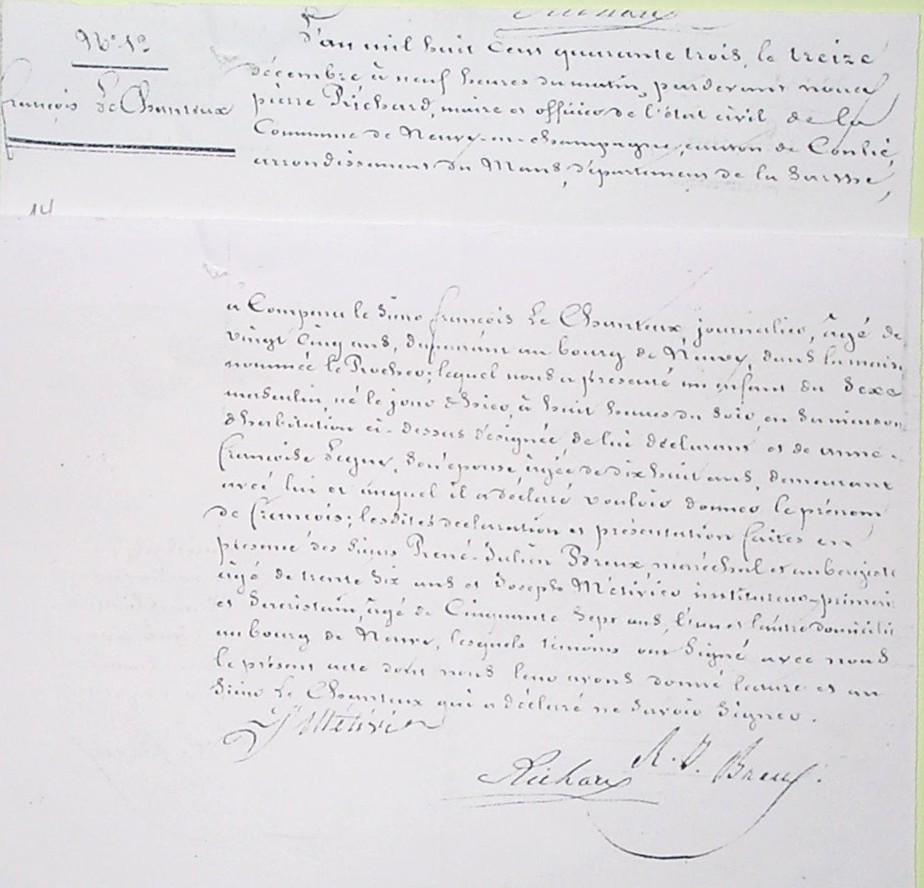 Richard
N° 19
François Le Chanteux
L'an mil huit cent quarante trois, le treize
décembre à neuf heures du matin, pardevant nous
pierre Richard, maire et officier de l'état civil de la
Commune de Neuvy-en-champagne, canton de Conlie,
arrondissement du Mans, département de la Sarthe,
14
a Comparu le Sieur françois Le Chanteux journalier, âgé de
vingt cinq ans, demeurant au bourg de Neuvy, dans la maison
nommée le Rocher; lequel nous a présenté un enfant du Sexe
masculin, né le jour d'hier, à huit heures du Soir, en Sa maison
d'habitation ci-dessus désignée de lui déclarant et de anne-
françoise Segner, Son épouse, âgée de dix huit ans, demeurant
avec lui et auquel il a déclaré vouloir donner le prénom
de françois; lesdites déclaration et présentation faites en
présence des Sieurs René-Julien Breux maréchal et aubergiste
âgé de trente Six ans et Joseph Métivier instituteur-primaire
et Sacristain, âgé de Cinquante Sept ans, l'un et l'autre domiciliés
au bourg de Neuvy, lesquels témoins ont Signé avec nous
le présent acte dont nous leur avons donné lecture et au
Sieur Le Chanteux qui a déclaré ne Savoir Signer.
J Métivier
R. J. Breux
Richard